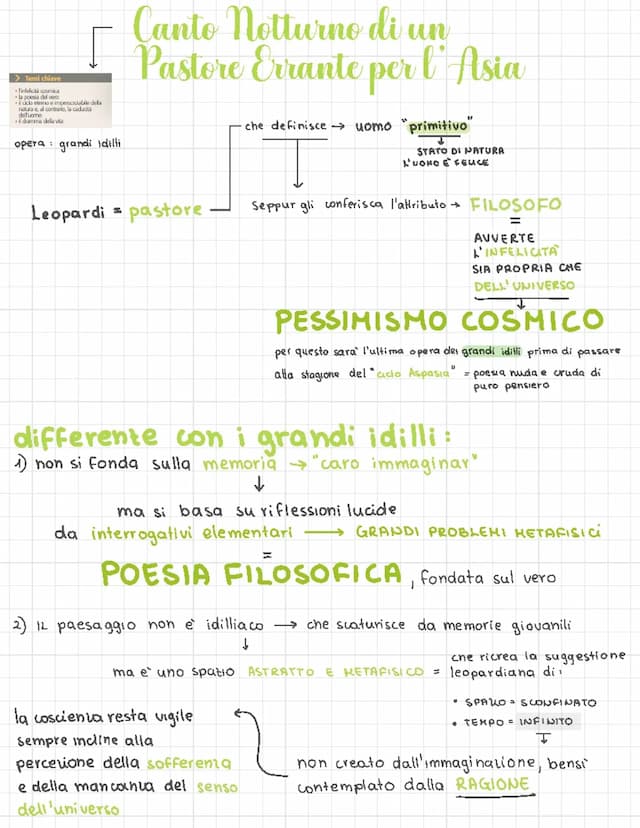 Canto Notturno di un
Pastore Errante per l'Asia
> Temi chiave
• l'infelicità cosmica
• la poesia del vero
• il ciclo eterno e imperscrutabile della
natura e, al contrario, la caducità
dell'uomo
• il dramma della vita
opera : grandi idilli
che definisce → uomo "primitivo"
STATO DI NATURA
L'UOMO E' FELICE
Leopardi = pastore
seppur gli conferisca l'attributo → FILOSOFO
=
AVVERTE
L'INFELICITÀ
SIA PROPRIA CHE
DELL'UNIVERSO
PESSIMISMO COSMICO
per questo sara' l'ultima opera dei grandi idilli prima di passare
alla stagione del "ciclo Aspasia" = poesia nuda e cruda di
puro pensiero
differente con i grandi idilli :
1) non si fonda sulla memoria → "caro immaginar"
↓
ma si basa su riflessioni lucide
da interrogativi elementari → GRANDI PROBLEMI METAFISICI
=
POESIA FILOSOFICA , fondata sul vero
2) IL paesaggio non e' idilliaco → che scaturisce da memorie giovanili
↓
ma e' uno spazio ASTRATTO E METAFISICO = che ricrea la suggestione
leopardiana di :
• SPAZIO = SCONFINATO
• TEMPO = INFINITO
non creato dall'immaginazione, bensi'
contemplato dalla RAGIONE
la coscienza resta vigile
sempre incline alla
percezione della sofferenza
e della mancanza del senso
dell'universo